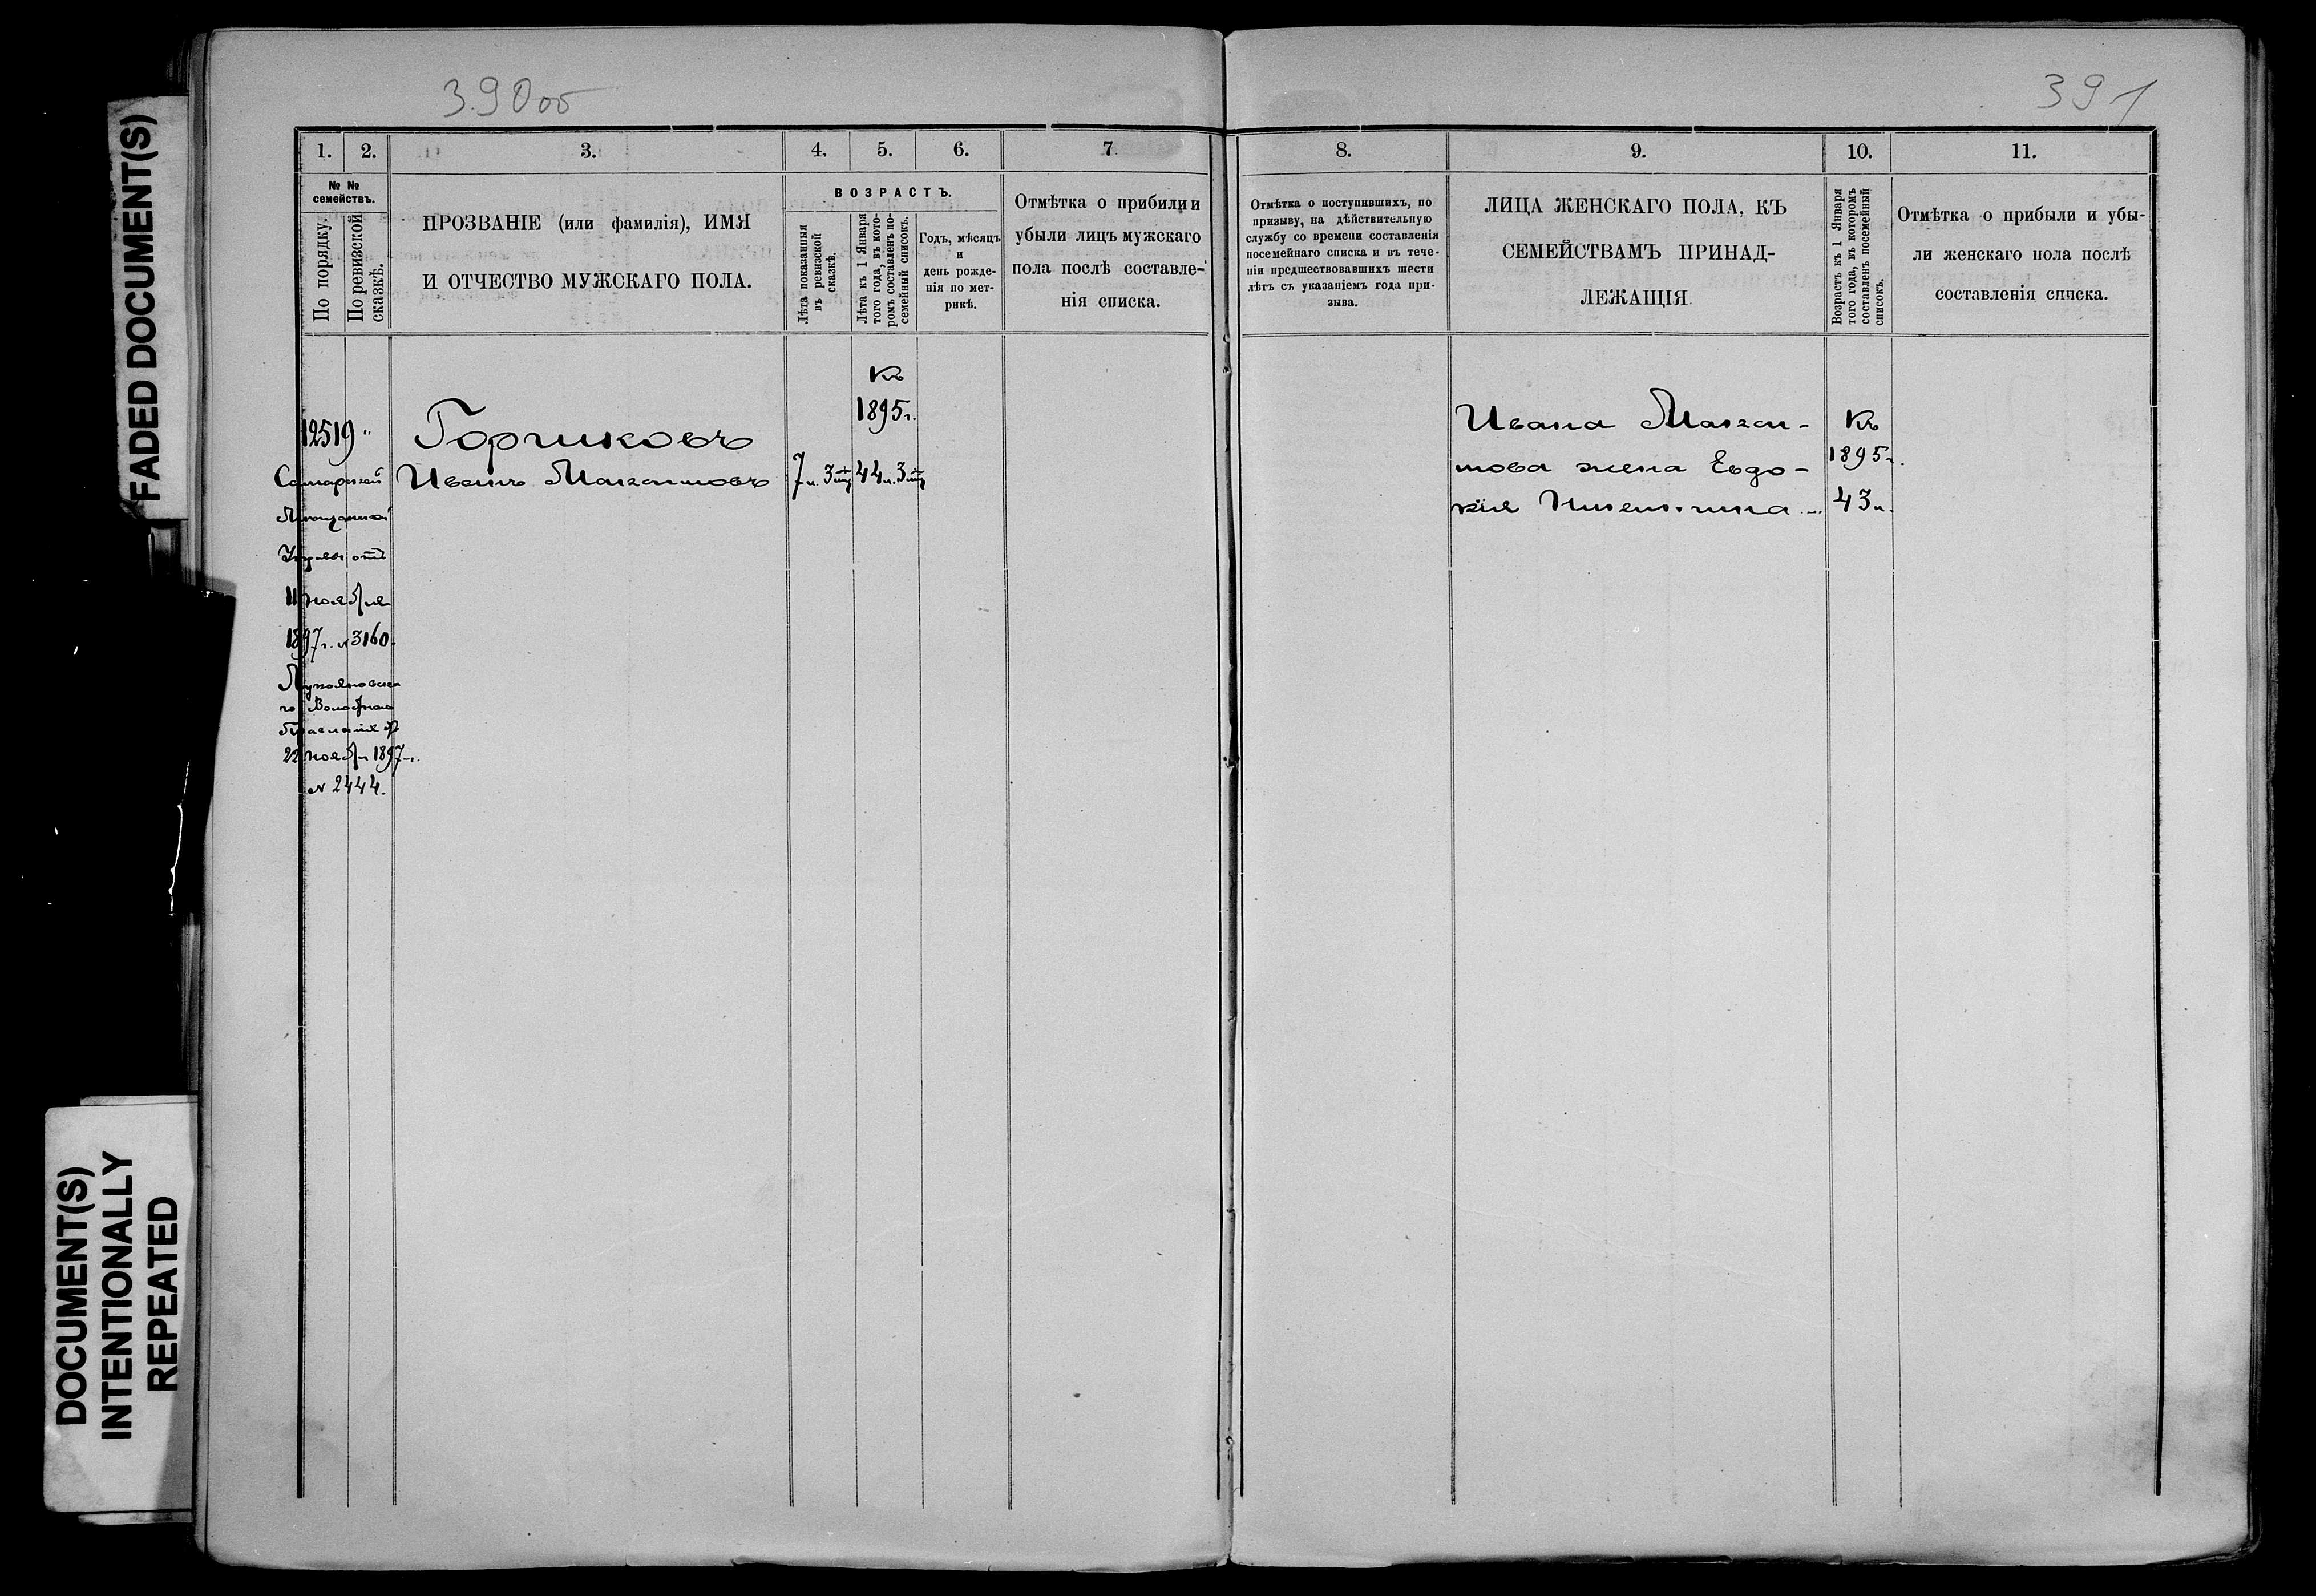 FADED DOCUMENT(S)
DOCUMENT(S)
INTENTIONALLY
REPEATED
390об
1. 2. 3. 4. 5. 6. 7
№ №
семействъ.
По порядку.
По ревизской
сказкѣ.
ПРОЗВАНІЕ (или фамилія), ИМЯ
И ОТЧЕСТВО МУЖСКАГО ПОЛА.
ВОЗРАСТЪ.
Лѣта показанныя
въ ревизской
сказкѣ.
Лѣта къ 1 Января
того года, въ кото-
ромъ составленъ по-
семейный списокъ.
Годъ, мѣсяцъ
и
день рожде-
нія по мет-
рикѣ.
Отмѣтка о прибыли и
убыли лицъ мужскаго
пола послѣ составле-
нія списка.
12519
Самарской
Мѣщанской
Управы отъ
11 ноября
1897г. № 3160.
Лукояновска
го Волостнаго
Правленія отъ
22 ноября 1897 г.
№ 2444.
Горшковъ
Иванъ Максимовъ
7 л. 3 мц
Къ
1895г.
44 л. 3 мц
391
8. 9. 10. 11.
Отмѣтка о поступившихъ, по
призыву, на дѣйствительную
службу со времени составленія
посемейнаго списка и въ тече-
ніи предшествовавшихъ шести
лѣтъ съ указаніемъ года при-
зыва.
ЛИЦА ЖЕНСКАГО ПОЛА, КЪ
СЕМЕЙСТВАМЪ ПРИНАД-
ЛЕЖАЩІЯ.
Возрастъ къ 1 Января
того года, въ которомъ
составленъ посемейный
списокъ.
Отмѣтка о прибыли и убы-
ли женскаго пола послѣ
составленія списка.
Ивана Макси-
мова жена Евдо-
кія
Къ
1895г.
43 л.